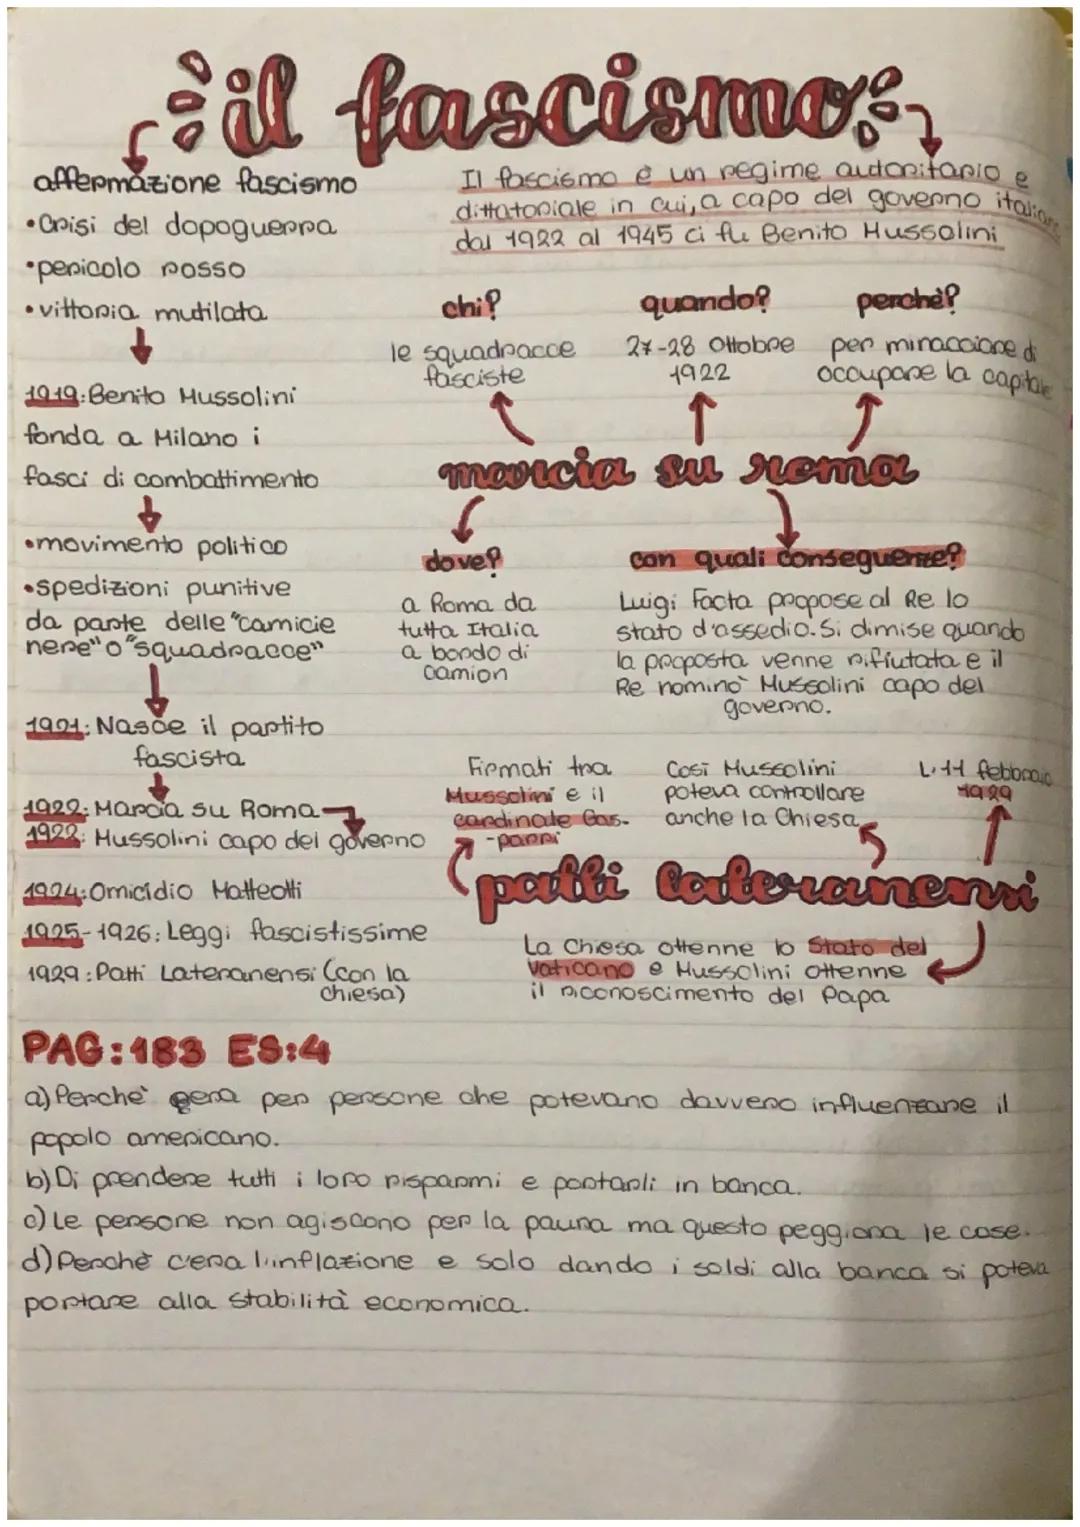 il fascismo
affermazione fascismo
•Crisi del dopoguerra
•pericolo rosso
•vittoria mutilata
1919:Benito Mussolini
fonda a Milano i
fasci di combattimento
•movimento politico
•spedizioni punitive
da parte delle "camicie
nere" o "squadracce"
1921: Nasce il partito
fascista
1922: Marcia su Roma
1922: Mussolini capo del governo
1924: Omicidio Matteotti
1925-1926: Leggi fascistissime
1929: Patti Lateranensi (con la
chiesa)
Il fascismo è un regime autoritario e
dittatoriale in cui, a capo del governo italiano
dal 1922 al 1945 ci fu Benito Mussolini
chi?
le squadracce
fasciste
quando?
27-28 Ottobre
1922
perchè?
per minacciare di
occupare la capitale
marcia su roma
dove?
a Roma da
tutta Italia
a bordo di
camion
con quali conseguenze?
Luigi Facta propose al Re lo
stato d'assedio. Si dimise quando
la proposta venne rifiutata e il
Re nominò Mussolini capo del
governo.
Firmati tra
Mussolini e il
cardinale Gas-
-parri
Così Mussolini
poteva controllare
anche la Chiesa
L'11 febbraio
1929
patti lateranensi
La Chiesa ottenne lo Stato del
Vaticano e Mussolini ottenne
il riconoscimento del Papa
PAG:183 ES:4
a) Perchè era per persone che potevano davvero influenzare il
popolo americano.
b) Di prendere tutti i loro risparmi e portarli in banca.
c) Le persone non agiscono per la paura ma questo peggiora le cose.
d) Perchè c'era l'inflazione e solo dando i soldi alla banca si poteva
portare alla stabilità economica.